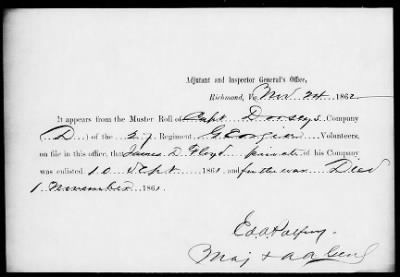 Adjutant and Inspector General's Office,
Richmond, Va. Nov. 24 1862
It appears from the Muster Roll of Capt Dorsey's Company
( D ) of the 27 Regiment Georgia Volunteers,
on file in this office, that James D Floyd private of his Company
was enlisted 10 Sept 1861 and for the war Died
1 November 1861
Maj & AAGenl